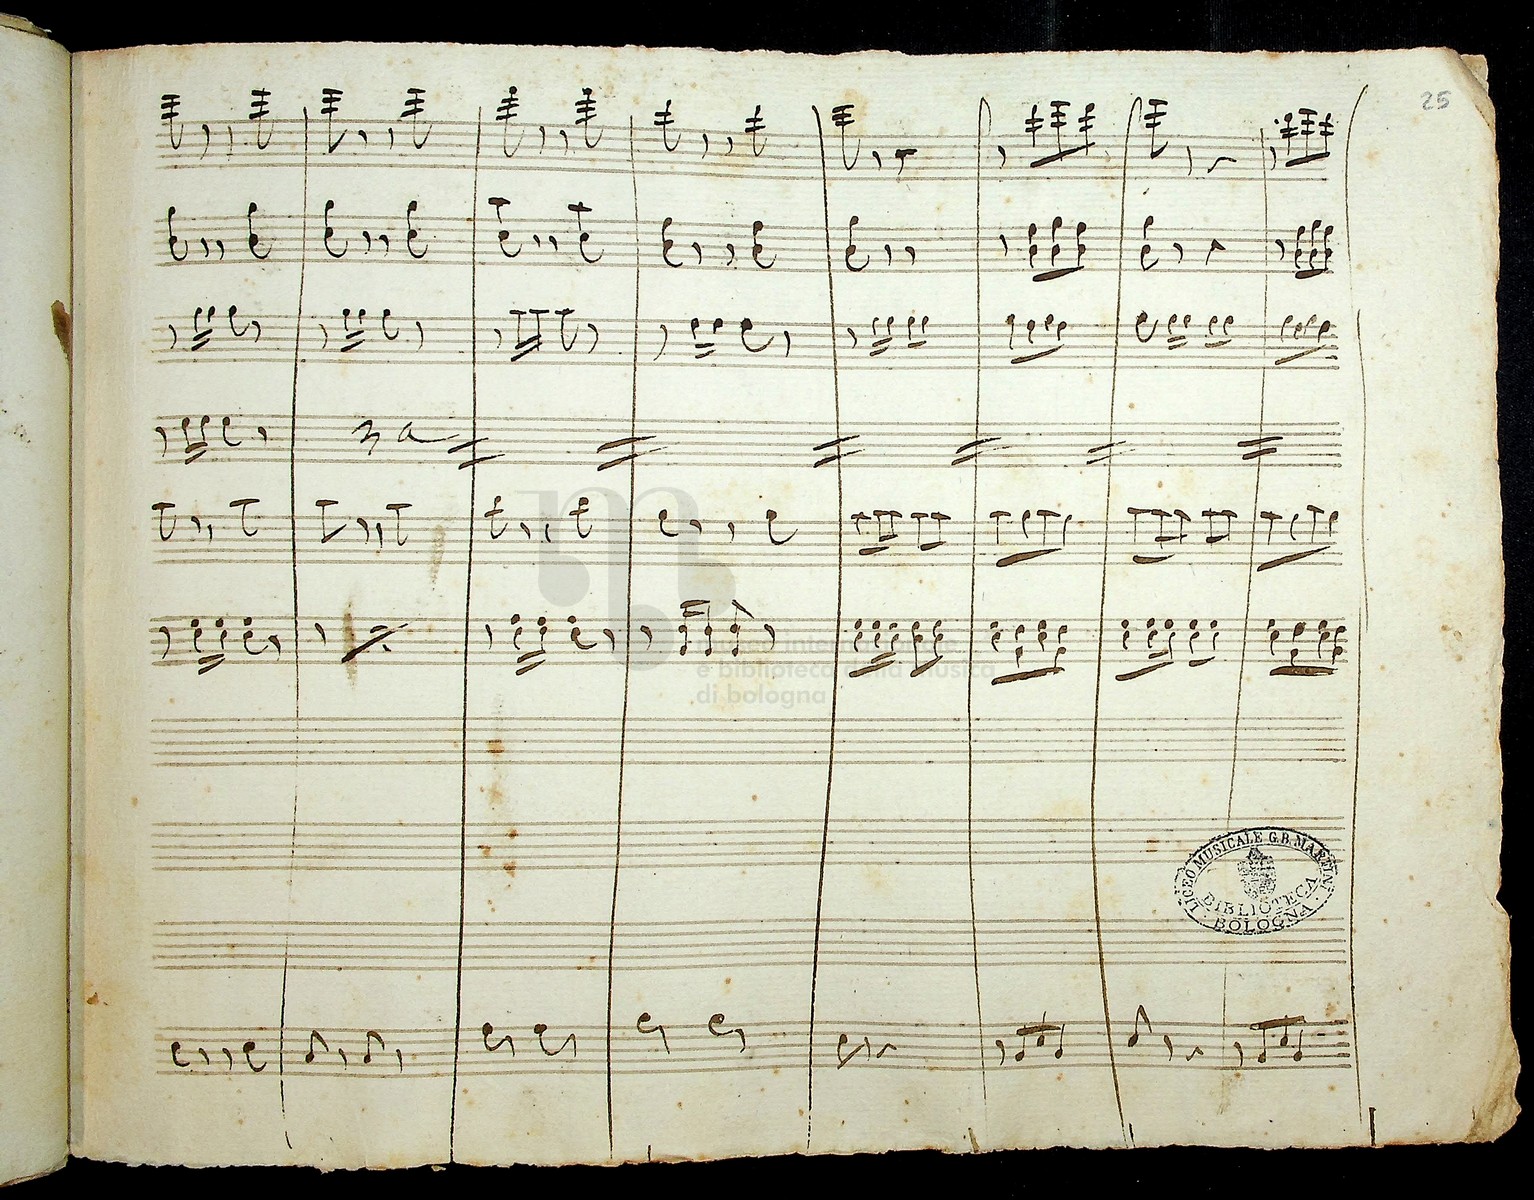 25
3 a
museo internazionale
e biblioteca della musica
di bologna
LICEO MUSICALE G.B. MARTINI
BIBLIOTECA
BOLOGNA